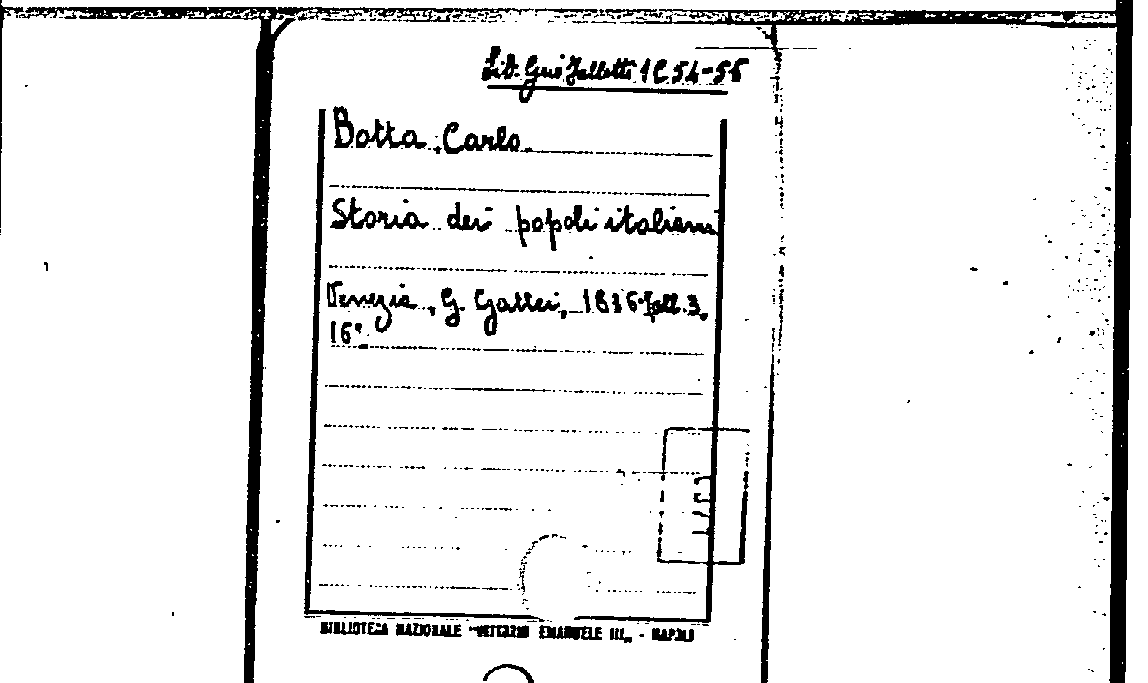 1C 54-56
Botta, Carlo
Storia dei popoli italiani
Venezia, G. Gattei, 1836. 3.
16º
BIBLIOTECA NAZIONALE "VITTORIO EMANUELE III" - NAPOLI